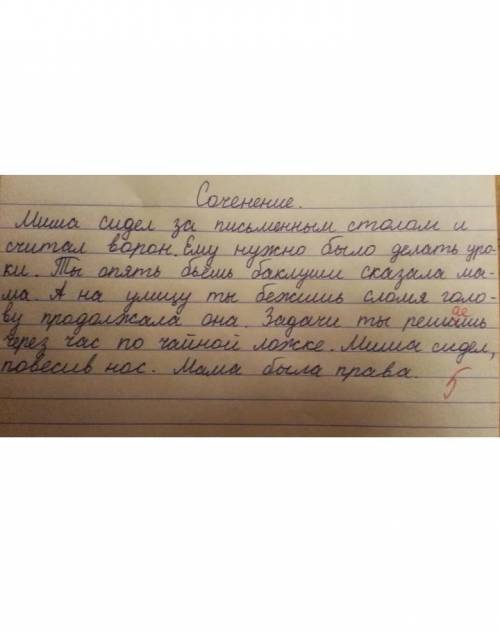 Соченение.
Миша сидел за письменным столом и
считал ворон. Ему нужно было делать уро-
ки. Ты опять бьёшь баклуши сказала ма-
ма. А на улицу ты бежишь сломя голо-
ву продолжала она. Задачи ты решаишь
ае
через час по чайной ложке. Миша сидел,
повесив нос. Мама была права.
5